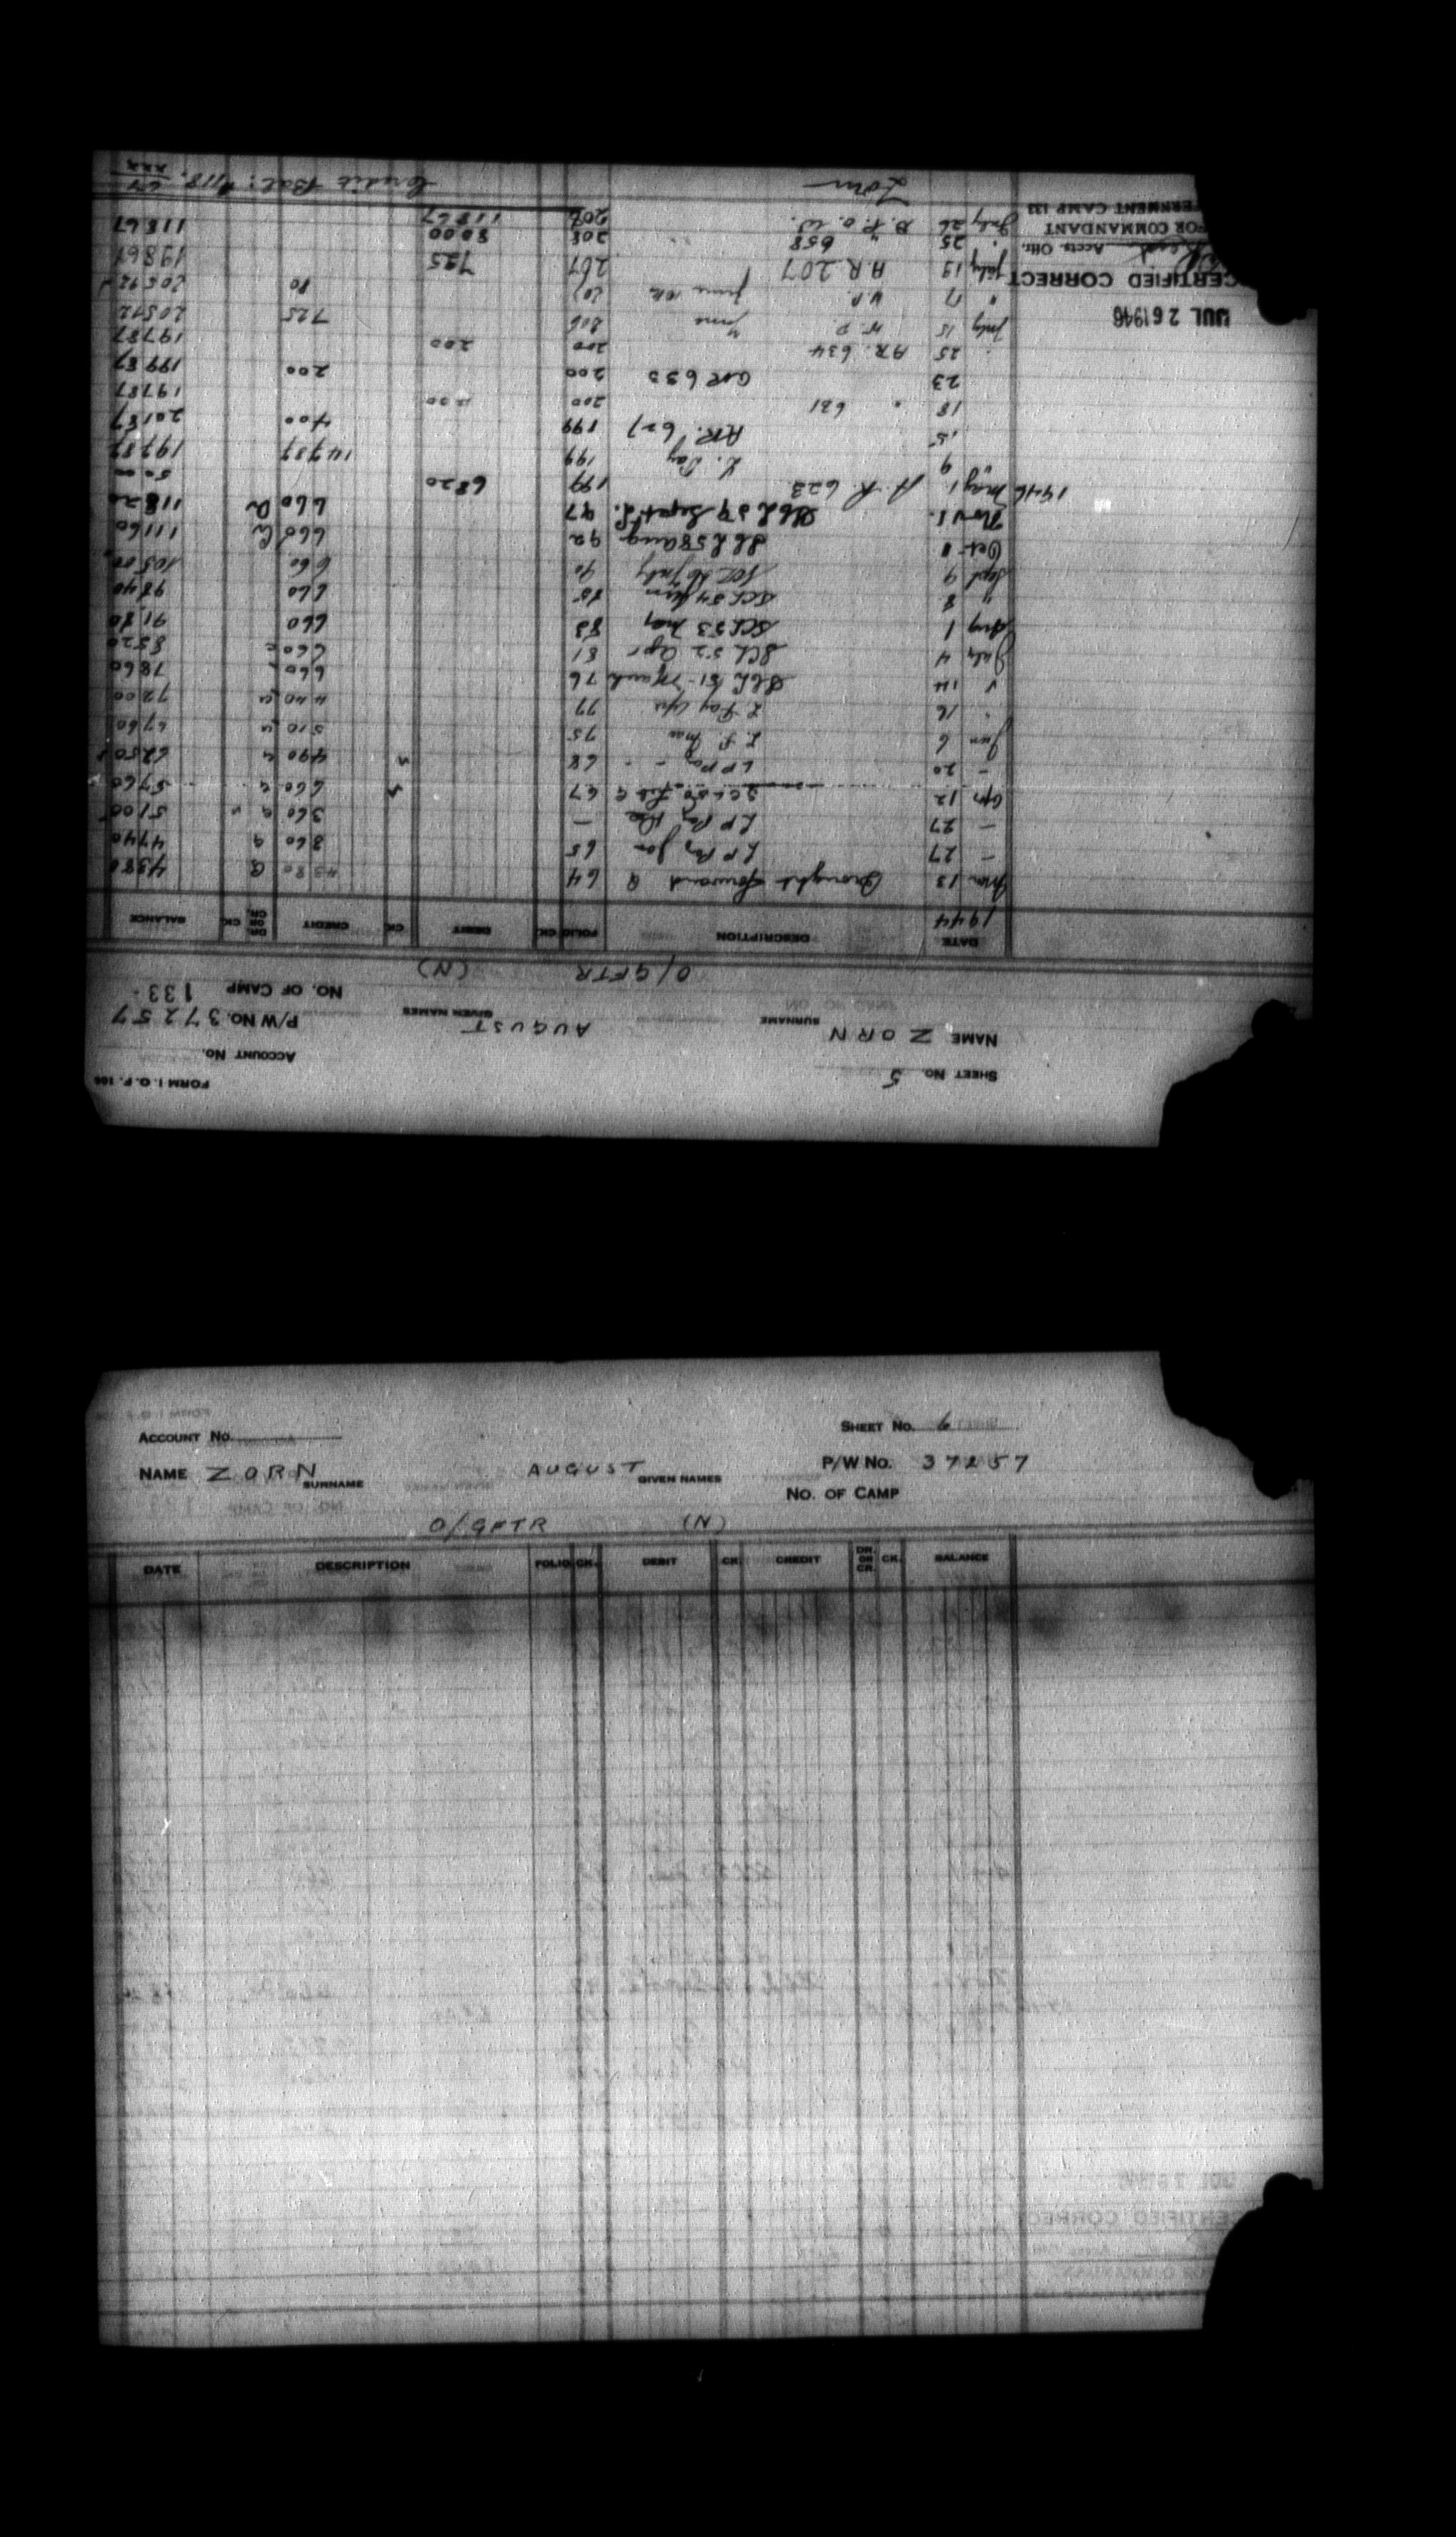 FORM I.O.F. 106
SHEET NO. 5
ACCOUNT NO.
NAME ZORN AUGUST P/W NO. 37257
SURNAME GIVEN NAMES
O/GFTR (N) NO. OF CAMP 133
DATE DESCRIPTION FOLIO CK. DEBIT CK. CREDIT DR. OR CR. CK. BALANCE
1944
Mar 13 Brought forward 64 43 80 43 80
- 27 LP Pay Jan 65 3 60 47 40
- 27 LP Pay — 3 60 51 00
Apr 12 67 6 60 57 60
- 20 LP Pay - - 68 4 90 62 50
Jun 6 75 5 10 67 60
16 77 4 40 72 00
14 SCL 51 - March 76 6 60 78 60
July 4 SCL 52 Apr 81 6 60 85 20
Aug 1 SCL 53 May 83 6 60 91 80
" 8 SCL 54 Jun 85 6 60 98 40
Sept 9 July 90 6 60 105 00
Oct 8 SCL 58 Aug. 92 6 60 111 60
Nov 1. SCL 59 Sept. 97 6 60 118 20
1946 May 1 A.R 623 199 68 20 50 00
9 L. Pay 199 147 87 197 87
15 AR. 627 199 4 00 201 87
18 " 631 200 4 00 197 87
23 GAR 633 200 2 00 199 87
25 AR. 634 200 2 00 197 87
July 15 W.P. June 206 7 25 205 12
" 17 W.P. June 207 80 205 92
July 19 A.R 207 207 7 25 198 67
" 25 " 658 208 80 00 118 67
July 26 D.P.O.W. 208 118 67
Zorn Credit Bal: $118. 67
xxx
JUL 26 1946
CERTIFIED CORRECT
Accts. Offr.
FOR COMMANDANT
INTERNMENT CAMP 133
ACCOUNT NO. SHEET NO. 6
NAME ZORN AUGUST P/W NO. 37257
SURNAME GIVEN NAMES
NO. OF CAMP
O/GFTR (N)
DATE DESCRIPTION FOLIO CK. DEBIT CK. CREDIT DR. OR CR. CK. BALANCE